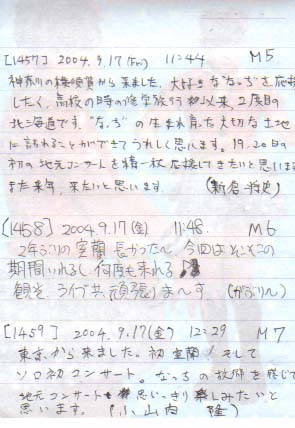 [1457] 2004.9.17(Fri) 11:44 M5
神奈川の横須賀から来ました。大好きな"なっち"を応援
したく、高校の時の修学旅行以来、2度目の
北海道です。"なっち"の生まれ育った大切な土地
に訪れることができてうれしく思います。19.20日の
初の地元コンサートを精一杯応援してきたいと思います
また来年、来たいと思います。 (新倉 将史)
[1458] 2004.9.17(金) 11:48. M6
2年ぶりの室蘭 長かった〜、今回はそこそこの
期間いれるし、何度も来れる♪
観光、ライブ共、頑張りま〜す。 (がぅりん)
[1459] 2004.9.17(金) 12:29 M7
東京から来ました。初室蘭!そして
ソロ初コンサート。なっちの故郷を感じて
地元コンサートも思いっきり楽しみたいと
思います。 (小山内 隆)